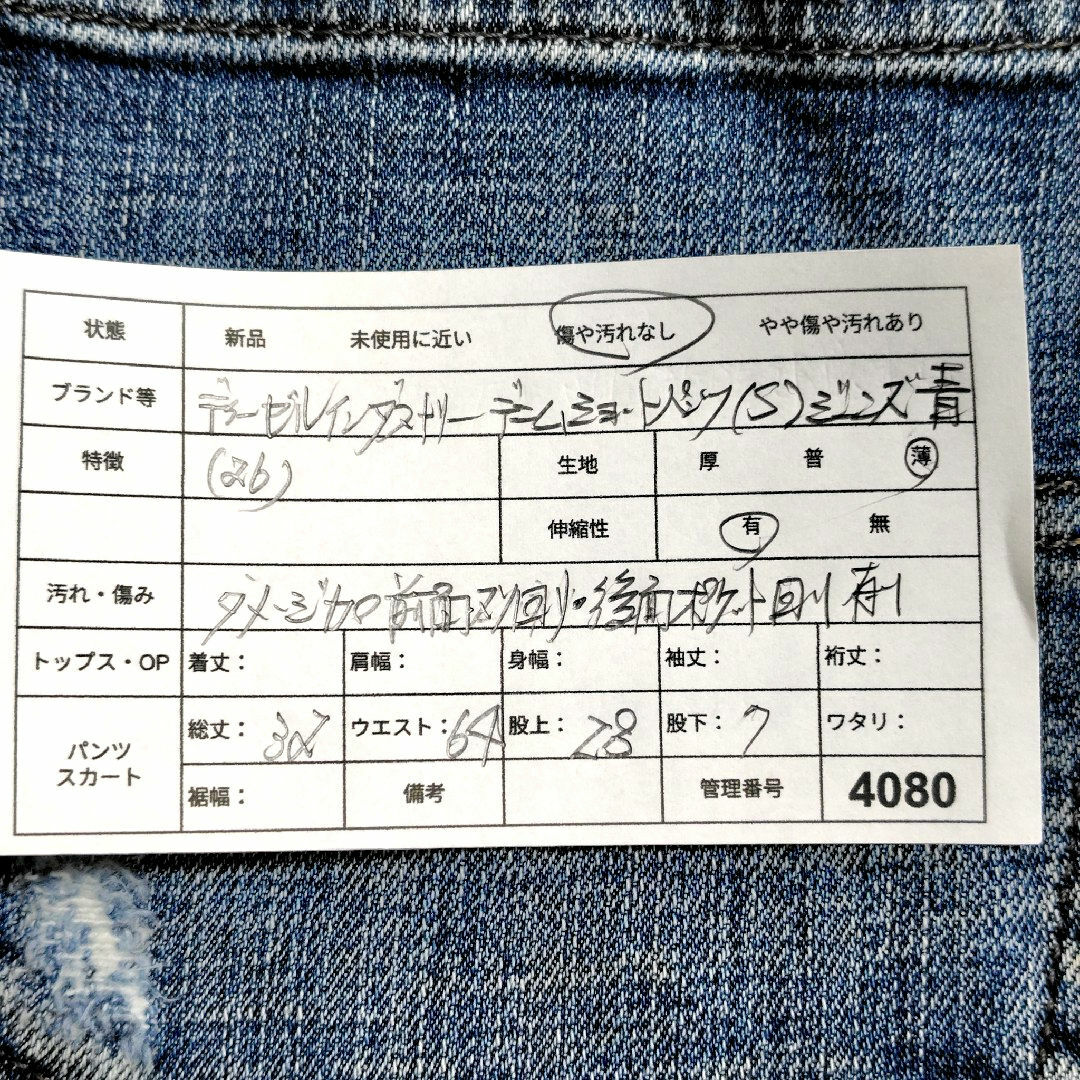 状態 新品 未使用に近い 傷や汚れなし やや傷や汚れあり
ブランド等 ディーゼルインダストリー デニムショートパンツ(S)ジーンズ 青
特徴 (26) 生地 厚 普 薄
伸縮性 有 無
汚れ・傷み ダメージ加 前面 回り・後面ポケット回り 有り
トップス・OP 着丈： 肩幅： 身幅： 袖丈： 裄丈：
パンツ スカート 総丈：32 ウエスト：64 股上：28 股下：7 ワタリ：
裾幅： 備考 管理番号 4080